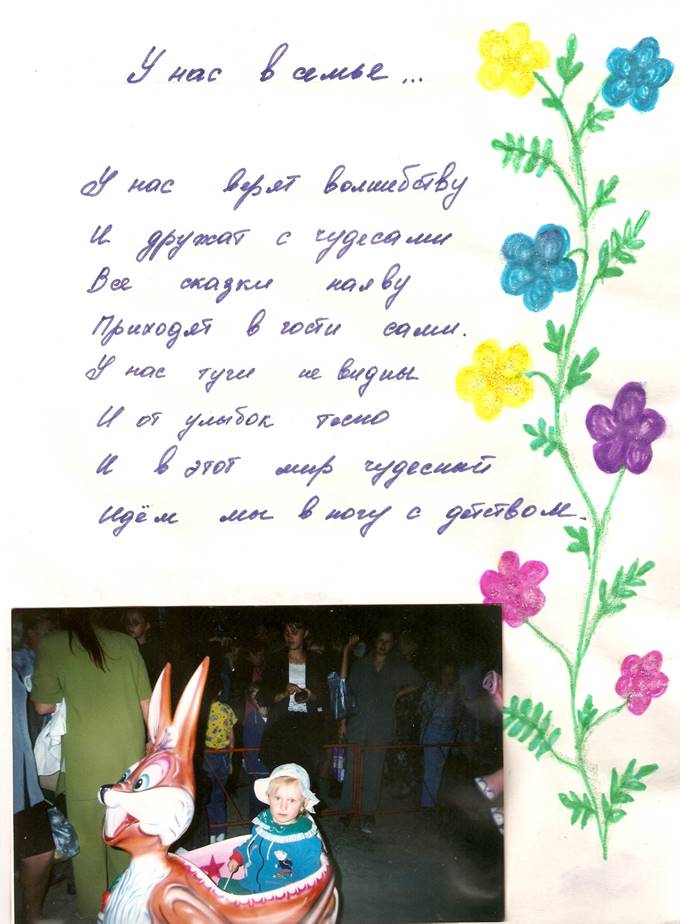 У нас в семье...
У нас верят волшебству
И дружат с чудесами
Все сказки наяву
Приходят в гости сами.
У нас тучи не видны
И от улыбок тесно
И в этот мир чудесный
Идём мы в ногу с детством.